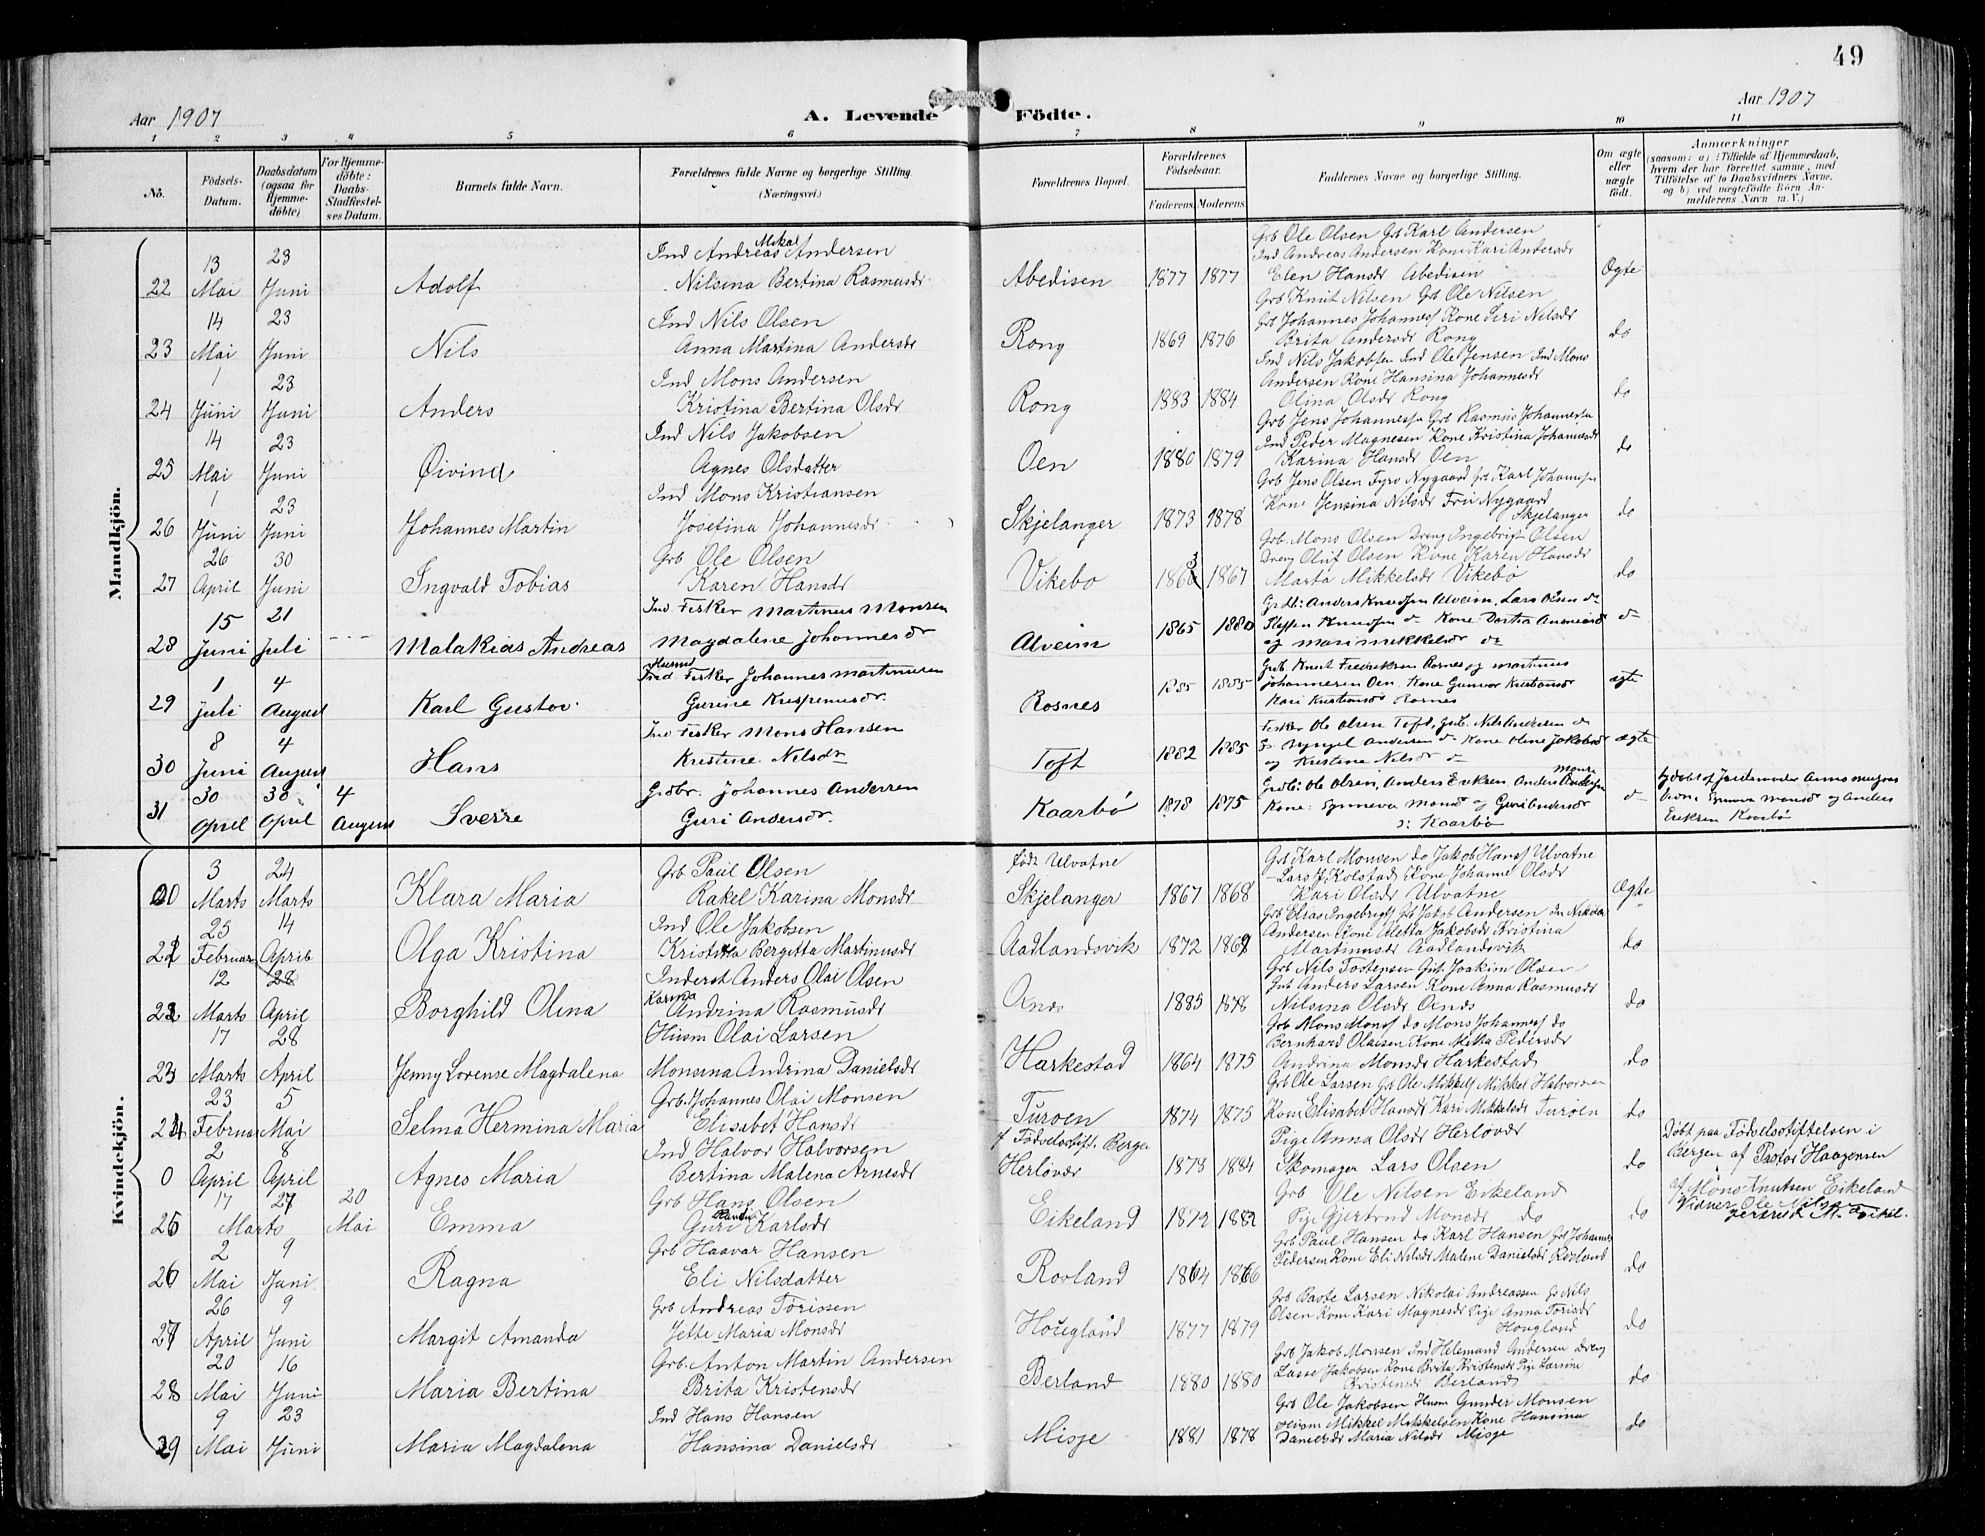 49
Aar 1907
A. Levende Födte.
Aar 1907
1 2 3 4 5 6 7 8 9 10 11
No.
Födsels-Datum.
Daabsdatum (ogsaa for Hjemme-döbte)
For Hjemme-döbte: Daabs-Stadfæstel-ses Datum.
Barnets fulde Navn.
Forældrenes fulde Navne og borgerlige Stilling (Næringsvei.)
Forældrenes Bopæl.
Forældrenes Födselsaar.
Faderens. Moderens.
Faddernes Navne og borgerlige Stilling.
Om ægte eller uægte födt.
Anmærkninger
(saasom: a) i Tilfælde af Hjemmedaab, hvem der har forrettet samme, med Tilföielse af to Daabsvidners Navne, og b) ved uægtefödte Börn An-melderens Navn m. V.)
Mandkjön.
13 23 Ind Andreas Mikal Andersen Grb Ole Olsen Gb Karl Andersen
Ind Andreas Andersen Kone Kari Andersdr
22 Mai Juni Adolf Nilsina Bertina Rasmusdr Abedisen 1877 1877 Elen Hansdr Abedisen Ægte
14 23 Ind Nils Olsen Grb Knut Nilsen Grb Ole Nilsen
Grb Johannes Johannesf Kone Siri Nilsdr
23 Mai Juni Nils Anna Martina Andersdr Rong 1869 1876 Brita Andersdr Rong do
1 23 Ind Mons Andersen Ind Nils Jakobsen Ind Ole Jensen Ind Mons
Andersen Kone Hansina Johannesdr
24 Juni Juni Anders Kristina Bertina Olsdr Rong 1883 1884 Olina Olsdr Rong do
14 23 Ind Nils Jakobsen Grb Jens Johannessn Grb Rasmus Johannessn
Ind Peder Magnesen Kone Kristina Johannesdr
25 Mai Juni Øivind Agnes Olsdatter Oen 1880 1879 Karina Hansdr Oen do
1 23 Ind Mons Kristiansen Grb Jens Olsen Fyro Nygaard Karl Johannesen
Kone Jensina Nilsdr Fru Nygaard
26 Juni Juni Johannes Martin Josefina Johannesdr Skjelanger 1873 1878 Skjelanger do
26 30 Grb Ole Olsen Grb Mons Olsen Dreng Ingebrigt Olsen
Dreng Oluf Olsen Kone Karen Hansdr
27 April Juni Ingvald Tobias Karen Hansdr Vikebø 1863 1867 Marta Mikkelsdr Vikebø do
15 21 Ind Fisker Martinus Monsen Grdb: Anders Knudsen Alveim, Lars Olsen do
28 Juni Juli --- Malakias Andreas Magdalene Johannesdr Alveim 1865 1880 Steffen Knudsen do Kone Dortha
og Mari Mikkelsdr do
1 4 Husmd Fisker Johannes Martinusen Grdb Knut Fredriksen Rosnes og Martinus
29 Juli August Karl Gustav Gurine Krispinusdr. Rosnes 1885 1885 Johannesen Oen Kone Gunvor Kristiansdr ægte
Kari Kristiansdr Rosnes
8 4 Ind Fisker Mons Hansen Fisker Ole Olsen Toft, Grdb. Nils Andersen do
30 Juni August Hans Kristine Nilsdr Toft 1882 1885 Andersen do Kone Oline Jakobsdr ægte
og Kristine Nilsdr do
30 30 4 Grdbr. Johannes Andersen Grdb: Ole Olsen, Anders Eriksen Anders Mons Andersen
31 April April August Sverre Guri Andersdr. Kaarbø 1878 1875 Kone: Synneva Monsdr og Guri Andersdr do
Kaarbø
Hjdøbt af Jordemoder Anna
Vidne Synneva Monsdr og Anders
Eriksen Kaarbø
Kvindekjön.
3 24 Grb Paul Olsen født Ulvatne Grb Karl Monsen do Jakob Hansf Ulvatne
Lars J. Kolstad Kone Johanne Olsdr
20 Marts Marts Klara Maria Rakel Karina Monsdr Skjelanger 1867 1868 Kari Olsdr Ulvatne Ægte
25 14 Ind Ole Jakobsen Grb Elias Ingebrigtf Gb Jakob Andersen Ind Nikolai
Andersen Kone Metta Jakobsdr Kristina
21 Februar April Olga Kristina Bergitta Martinusdr Aadlandsvik 1872 1869 Martinusdr Aadlandsvik do
12 28 Inderst Anders Olai Olsen Grb Nils Tostensen Grb Joakim Olsen
Grb Anders Larsen Kone Anna Rasmusdr
22 Marts April Borghild Olina Karina Andrina Rasmusdr Ornes 1885 1878 Nilsina Olsdr Ornes do
17 28 Husm Olai Larsen Grb Mons Monsf do Mons Johannesf do
Bernhard Olaisen Kone Mitha Pedersdr
23 Marts April Jenny Lovense Magdalena Monsina Andrina Danielsdr Harkestad 1864 1875 Andrina Monsdr Harkestad do
23 5 Grb Johannes Olai Monsen Grb Ole Larsen Gb Ole Mikkelf Mikkel Halvorsen
24 Februar Mai Selma Hermina Maria Elisabet Hansdr Turøen 1874 1875 Kone Elisabet Hansdr Kari Mikkelsdr Turøen do
2 8 Ind Halvor Halvorsen f Fødselsstift. Bergen Pige Anna Olsdr Herløvær
0 April April Agnes Maria Bertina Malena Arnesdr Herløvær 1878 1884 Skomager Lars Olsen do
Døbt paa Fødselsstiftelsen i
Bergen af Pastor Haagensen
17 27 20 Grb Hans Olsen Grb Ole Nilsen Eikeland
25 Marts Mai Emma Guri Karlsdr Eikeland 1872 1882 Pige Gjertrud Monsdr do do
af Mons Knutsen Eikeland
Vidner Ole Nilsen
Gertrud M. Eikel.
2 9 Grb Haavar Hansen Grb Paul Hansen do Karl Hansen Grb Johannes
Pedersen Kone Eli Nilsdr Malene Danielsdr Rosland
26 Mai Juni Ragna Eli Nilsdatter Rosland 1864 1866 do
26 9 Grb Andreas Tørissen Grb Baste Larsen Nikolai Andreassen Gb Nils
Olsen Kone Kari Magnesdr Pige Anna Torisdr
27 April Juni Margit Amanda Jette Maria Monsdr Hougland 1877 1879 Hougland do
20 16 Grb Anton Martin Andersen Grb Jakob Monsen Ind Helemand Andersen Dreng
Lasse Jakobsen Kone Brita Kristensdr Pige Larsine
28 Mai Juni Maria Bertina Brita Kristensdr Berland 1880 1880 Kristensdr Berland do
9 23 Ind Hans Hansen Grb Ole Jakobsen Husm Gunder Monsen
Husm Mikkel Mikkelsen Kone Hansina
29 Mai Juni Maria Magdalena Hansina Danielsdr Misje 1881 1878 Danielsdr Maria Nilsdr Misje do